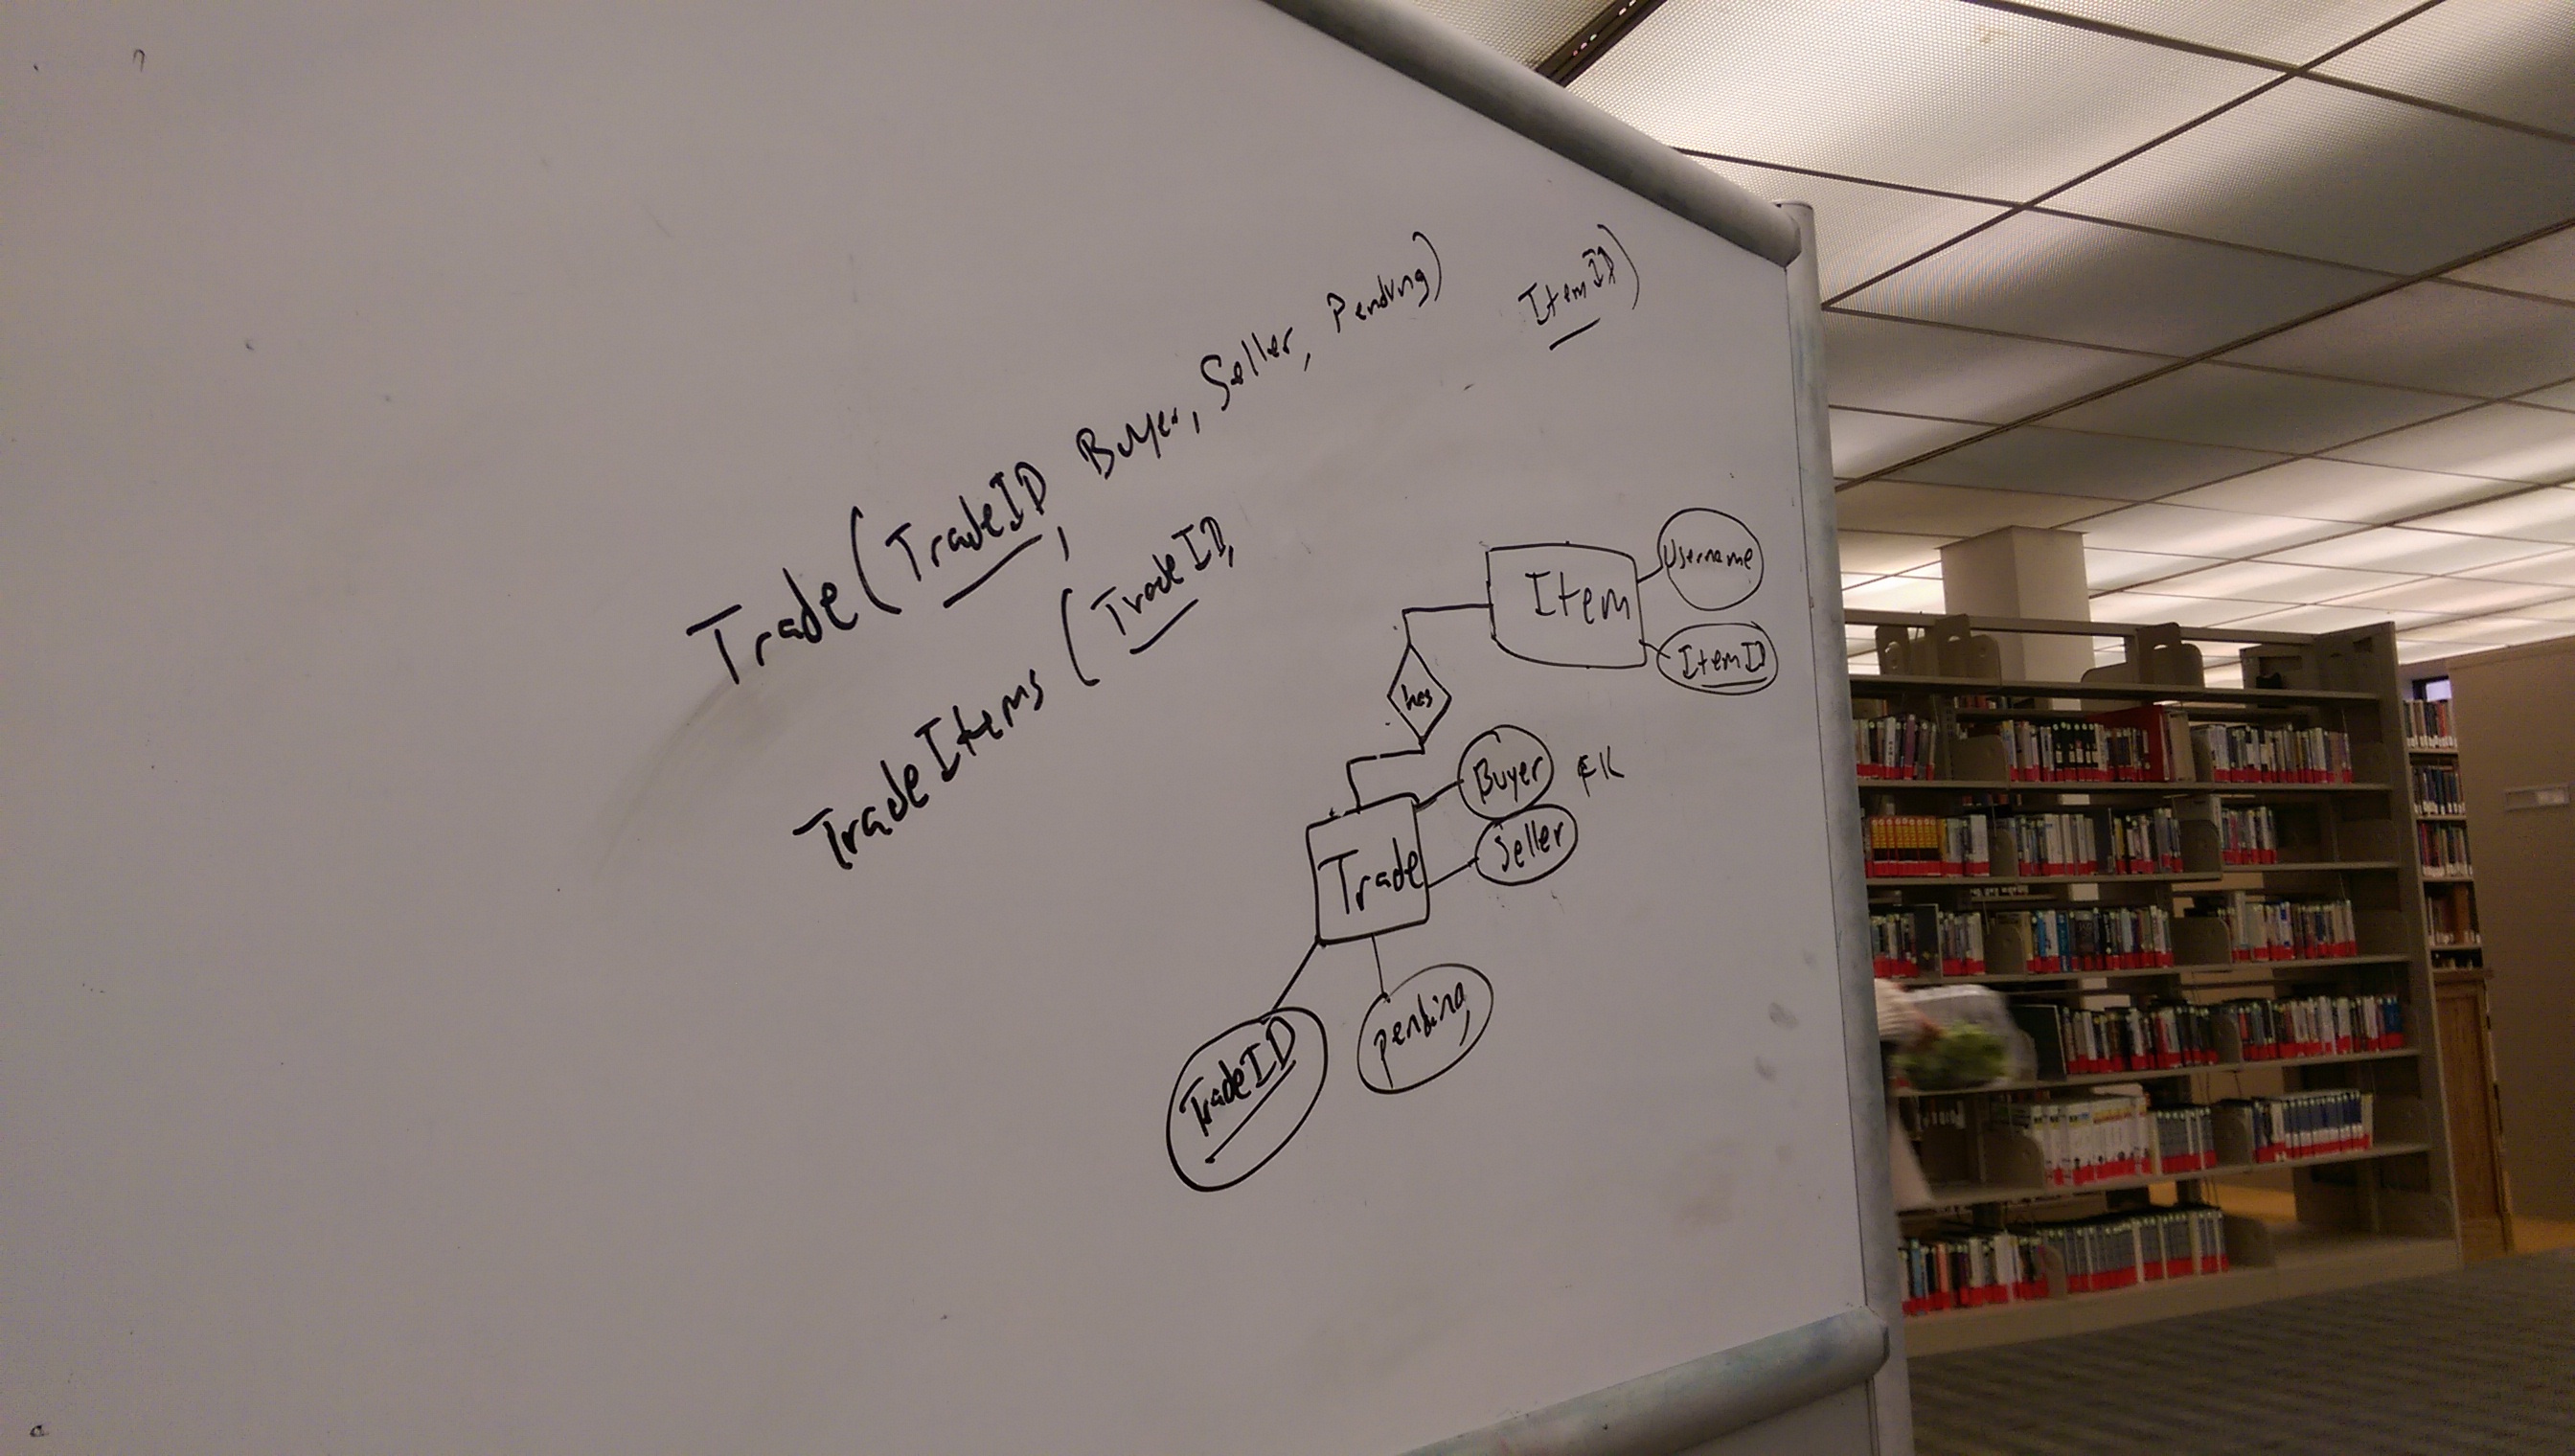 Trade(TradeID, Buyer, Seller, Pending)
TradeItems (TradeID, ItemID)
Item
Username
ItemID
has
Buyer FK
Seller
Trade
TradeID
pending